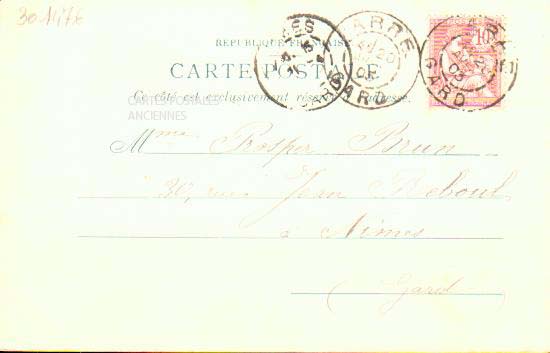 30 1476
RÉPUBLIQUE FRANÇAISE
CARTE POSTALE
Ce côté est exclusivement réservé à l'adresse.
CARTES POSTALES
ANCIENNES
ARRE
20
03
GARD
10
GARD
Mme Prosper Brun
30, rue Jean Reboul
à Nimes
Gard